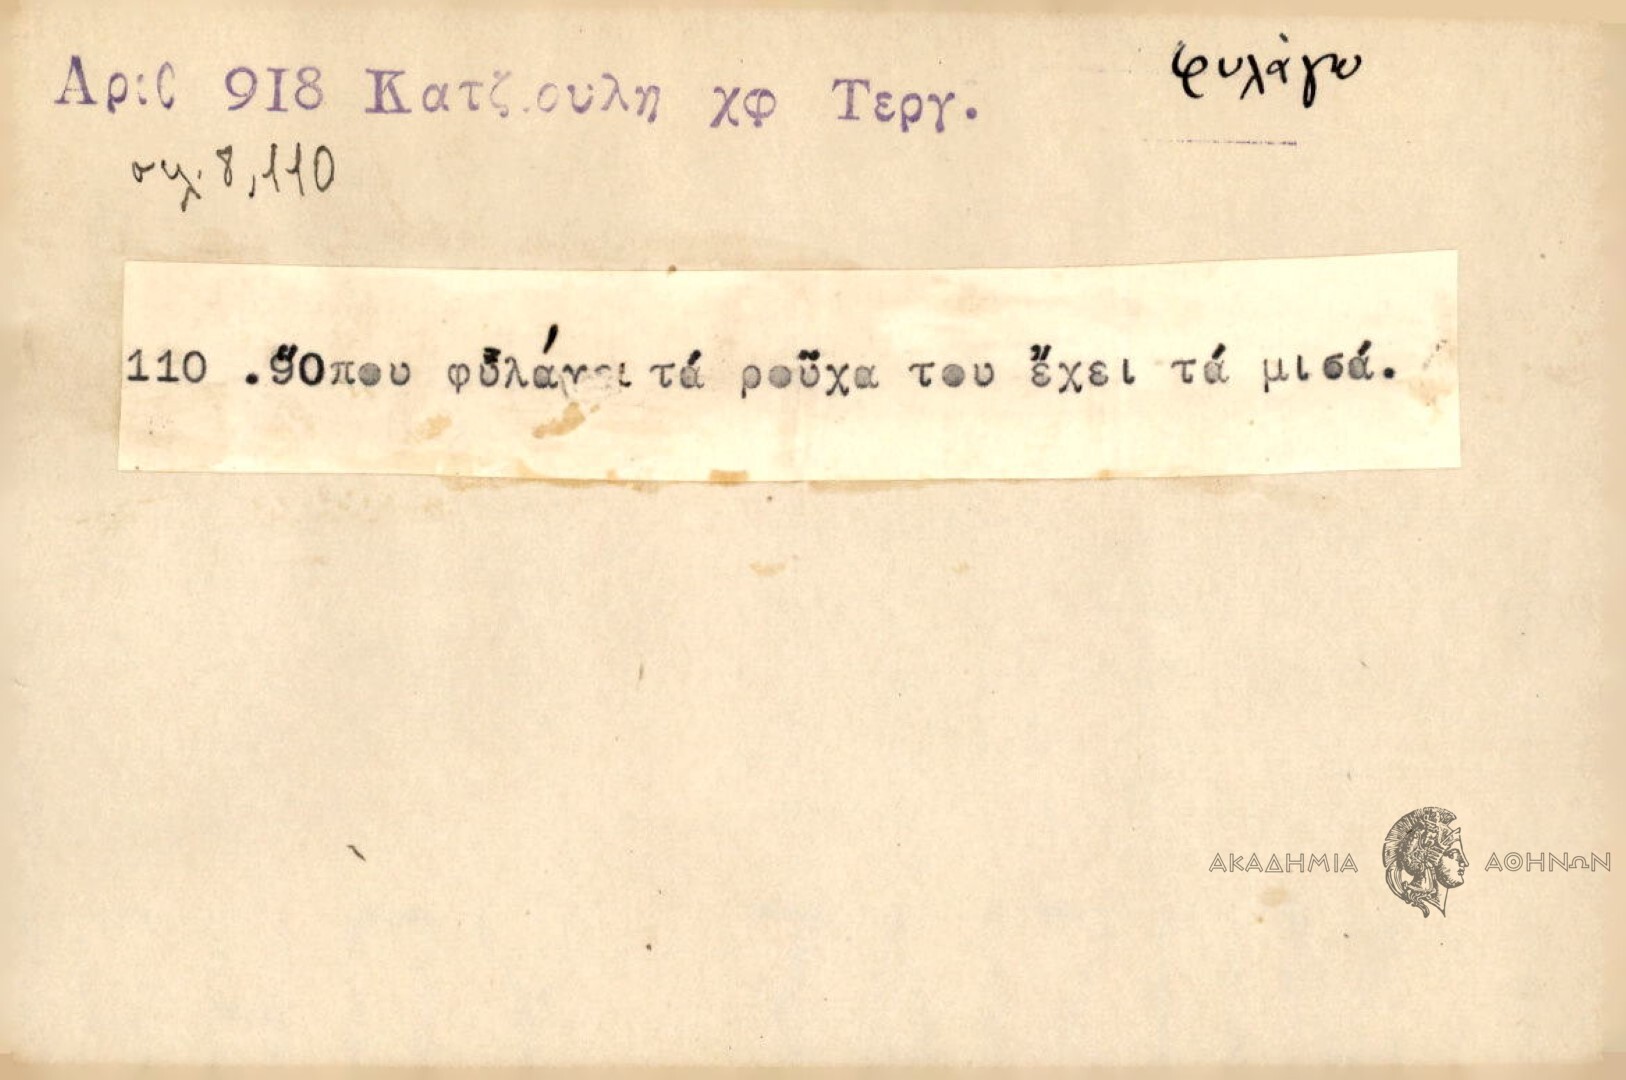 Αριθ 918 Κατζιουλη χφ Τεργ.
φυλάγω
σελ. 8,110
110 . Ὅπου φυλάγει τά ροῦχα του ἔχει τά μισά.
ΑΚΑΔΗΜΙΑ ΑΘΗΝΩΝ